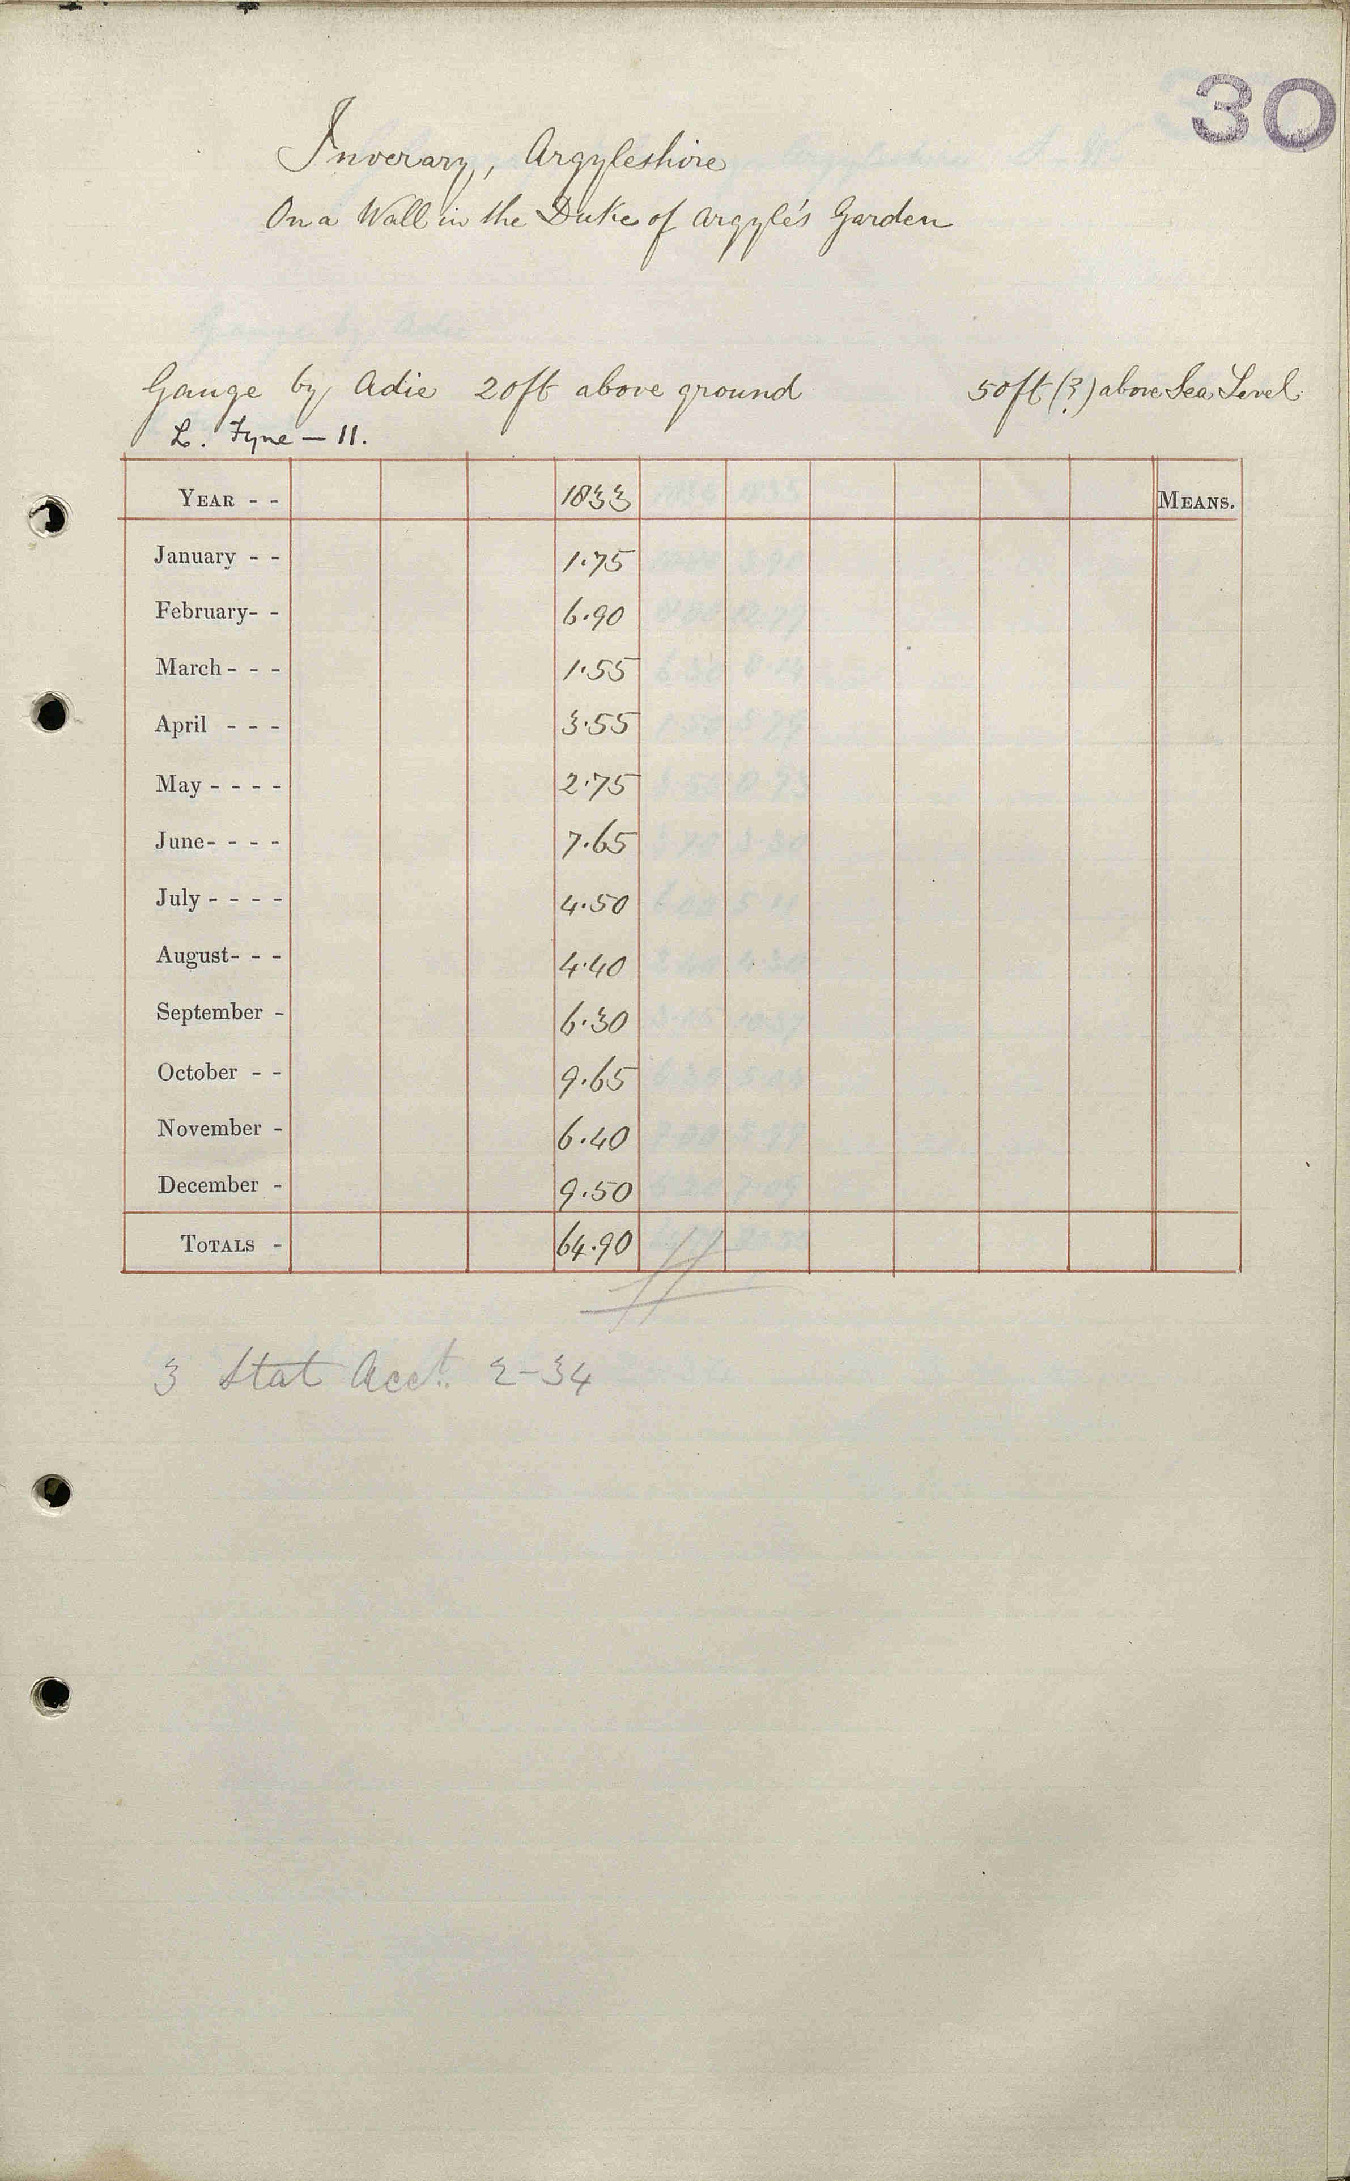 30
Inverary, Argyleshire
On a Wall in the Duke of Argyle's Garden
Gauge by Adie 20ft above ground 50ft (?) above Sea Level
L. Fyne — 11.
YEAR - - 1833 MEANS.
January - - 1.75
February - - 6.90
March - - - 1.55
April - - - 3.55
May - - - - 2.75
June - - - - 7.65
July - - - - 4.50
August - - - 4.40
September - 6.30
October - - 9.65
November - 6.40
December - 9.50
TOTALS - 64.90
3 Stat Acct. 2-34